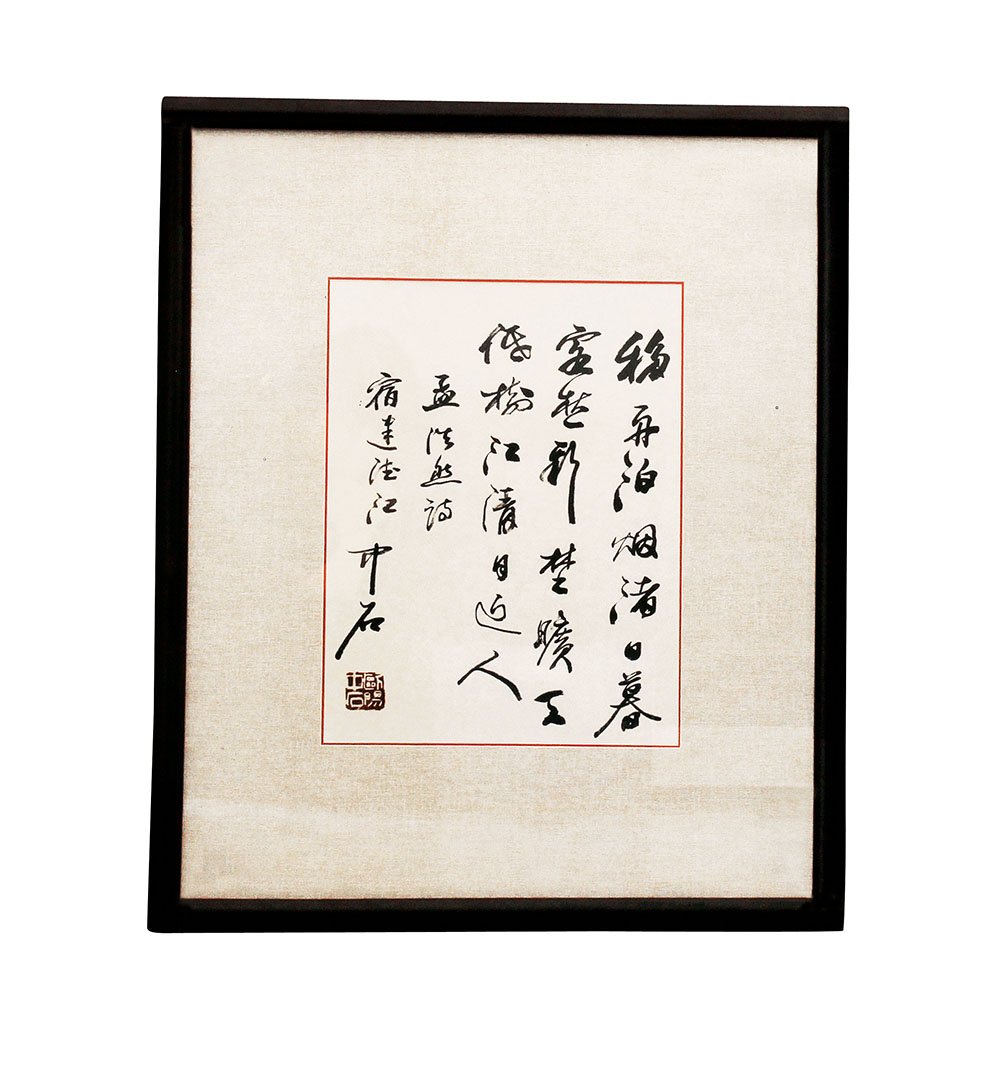 移舟泊烟渚日暮
客愁新 埜曠天
低樹江清月近人
孟浩然詩
宿建德江 中石
歐陽中石